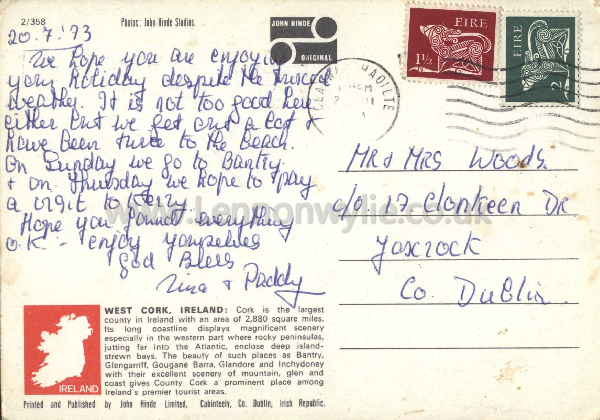 2/358
Photos: John Hinde Studios.
JOHN HINDE
ORIGINAL
20.7.'73
We hope you are enjoying
your holiday despite the mixed
weather. It is not too good here
either but we get out a lot &
have been twice to the beach.
On Sunday we go to Bantry
& on Thursday we hope to pay
a visit to Kerry.
Hope you found everything
O.K. - enjoy yourselves
God Bless
Tina & Paddy
EIRE
1½
EIRE
2
Mr & Mrs Woods
c/o 17 Clonkeen Dr
Foxrock
Co. Dublin.
www.Lennonwylie.co.uk
WEST CORK, IRELAND: Cork is the largest
county in Ireland with an area of 2,880 square miles.
Its long coastline displays magnificent scenery
especially in the western part where rocky peninsulas,
jutting far into the Atlantic, enclose deep island-
strewn bays. The beauty of such places as Bantry,
Glengarriff, Gougane Barra, Glandore and Inchydoney
with their excellent scenery of mountain, glen and
coast gives County Cork a prominent place among
Ireland's premier tourist areas.
IRELAND
Printed and Published by John Hinde Limited, Cabinteely, Co. Dublin, Irish Republic.